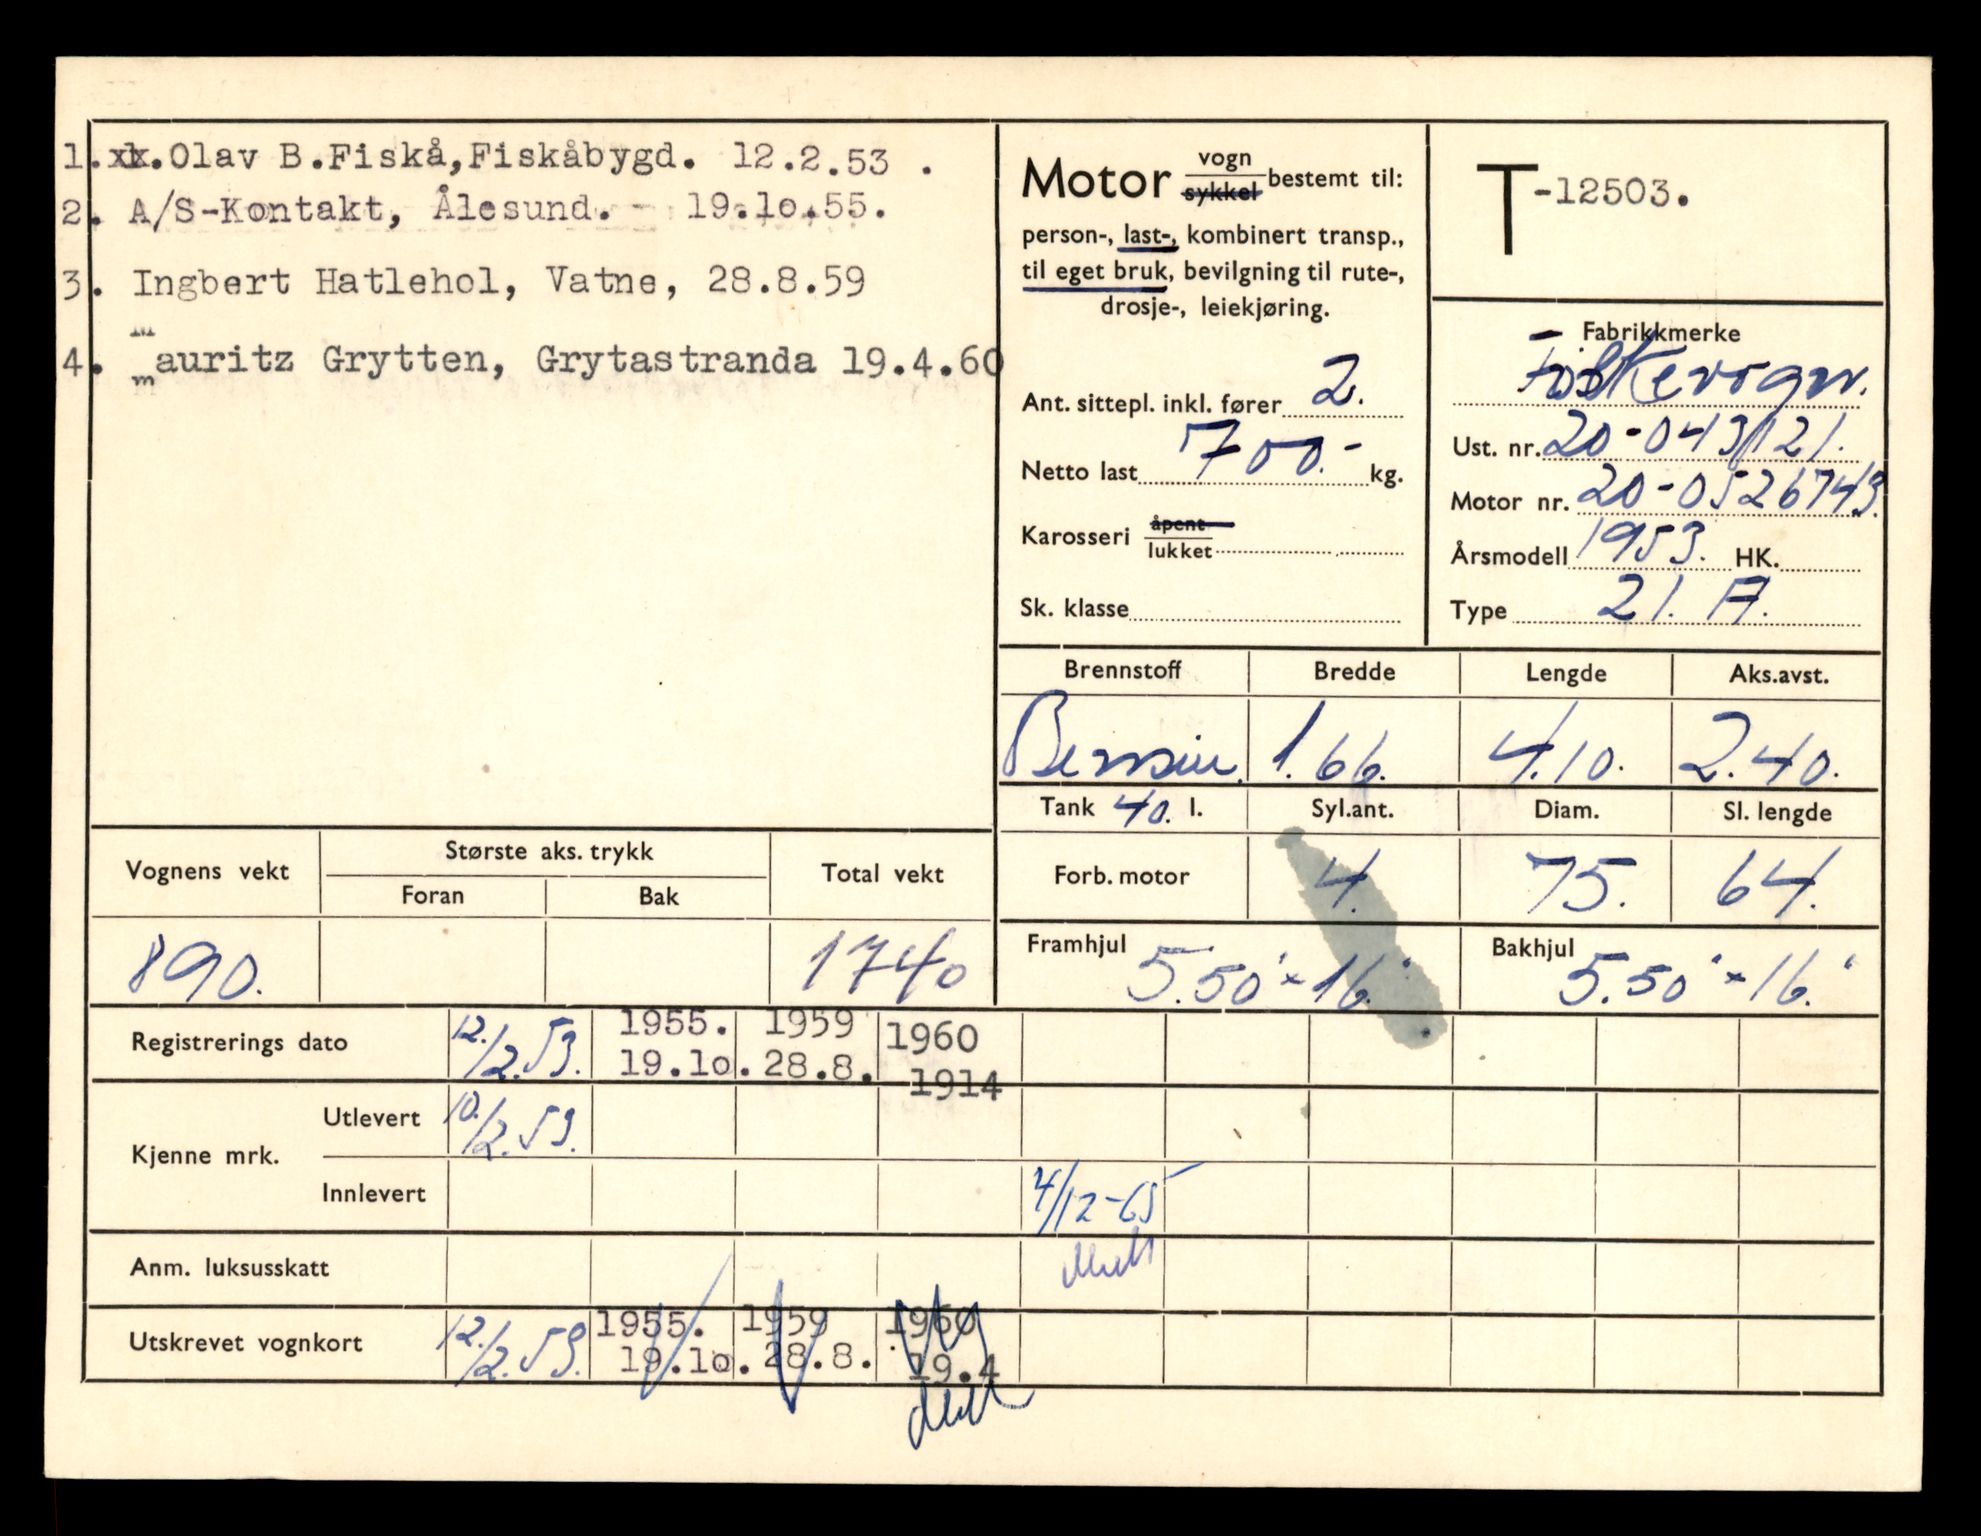 1.xxx.Olav B.Fiskå,Fiskåbygd. 12.2.53 .
2. A/S-Kontakt, Ålesund. - 19.lo.55.
3. Ingbert Hatlehol, Vatne, 28.8.59
4. mauritz Grytten, Grytastranda 19.4.60
Motor vogn sykkel bestemt til:
person-, last-, kombinert transp.,
til eget bruk, bevilgning til rute-,
drosje-, leiekjøring.
Ant. sittepl. inkl. fører 2.
Netto last 700.- kg.
Karosseri åpent lukket
Sk. klasse
T-12503.
Fabrikkmerke
Folkevogn.
Ust. nr. 20-043121.
Motor nr. 20-0526743.
Årsmodell 1953. HK.
Type 21. A.
Brennstoff Bredde Lengde Aks.avst.
Bensin. 1.66. 4.10. 2.40.
Tank 40. l. Syl.ant. Diam. Sl. lengde
Forb. motor 4. 75. 64.
Framhjul 5.50"×16." Bakhjul 5.50"×16."
Vognens vekt Største aks. trykk Total vekt
Foran Bak
890. 1740
Registrerings dato 12./2.53. 1955. 19.lo. 1959 28.8. 1960 1914
Kjenne mrk.
Utlevert 10./2.53.
Innlevert 4/12-65
Anm. luksusskatt
Utskrevet vognkort 12./2.53. 1955. 19.lo. 1959 28.8. 1960 19.4